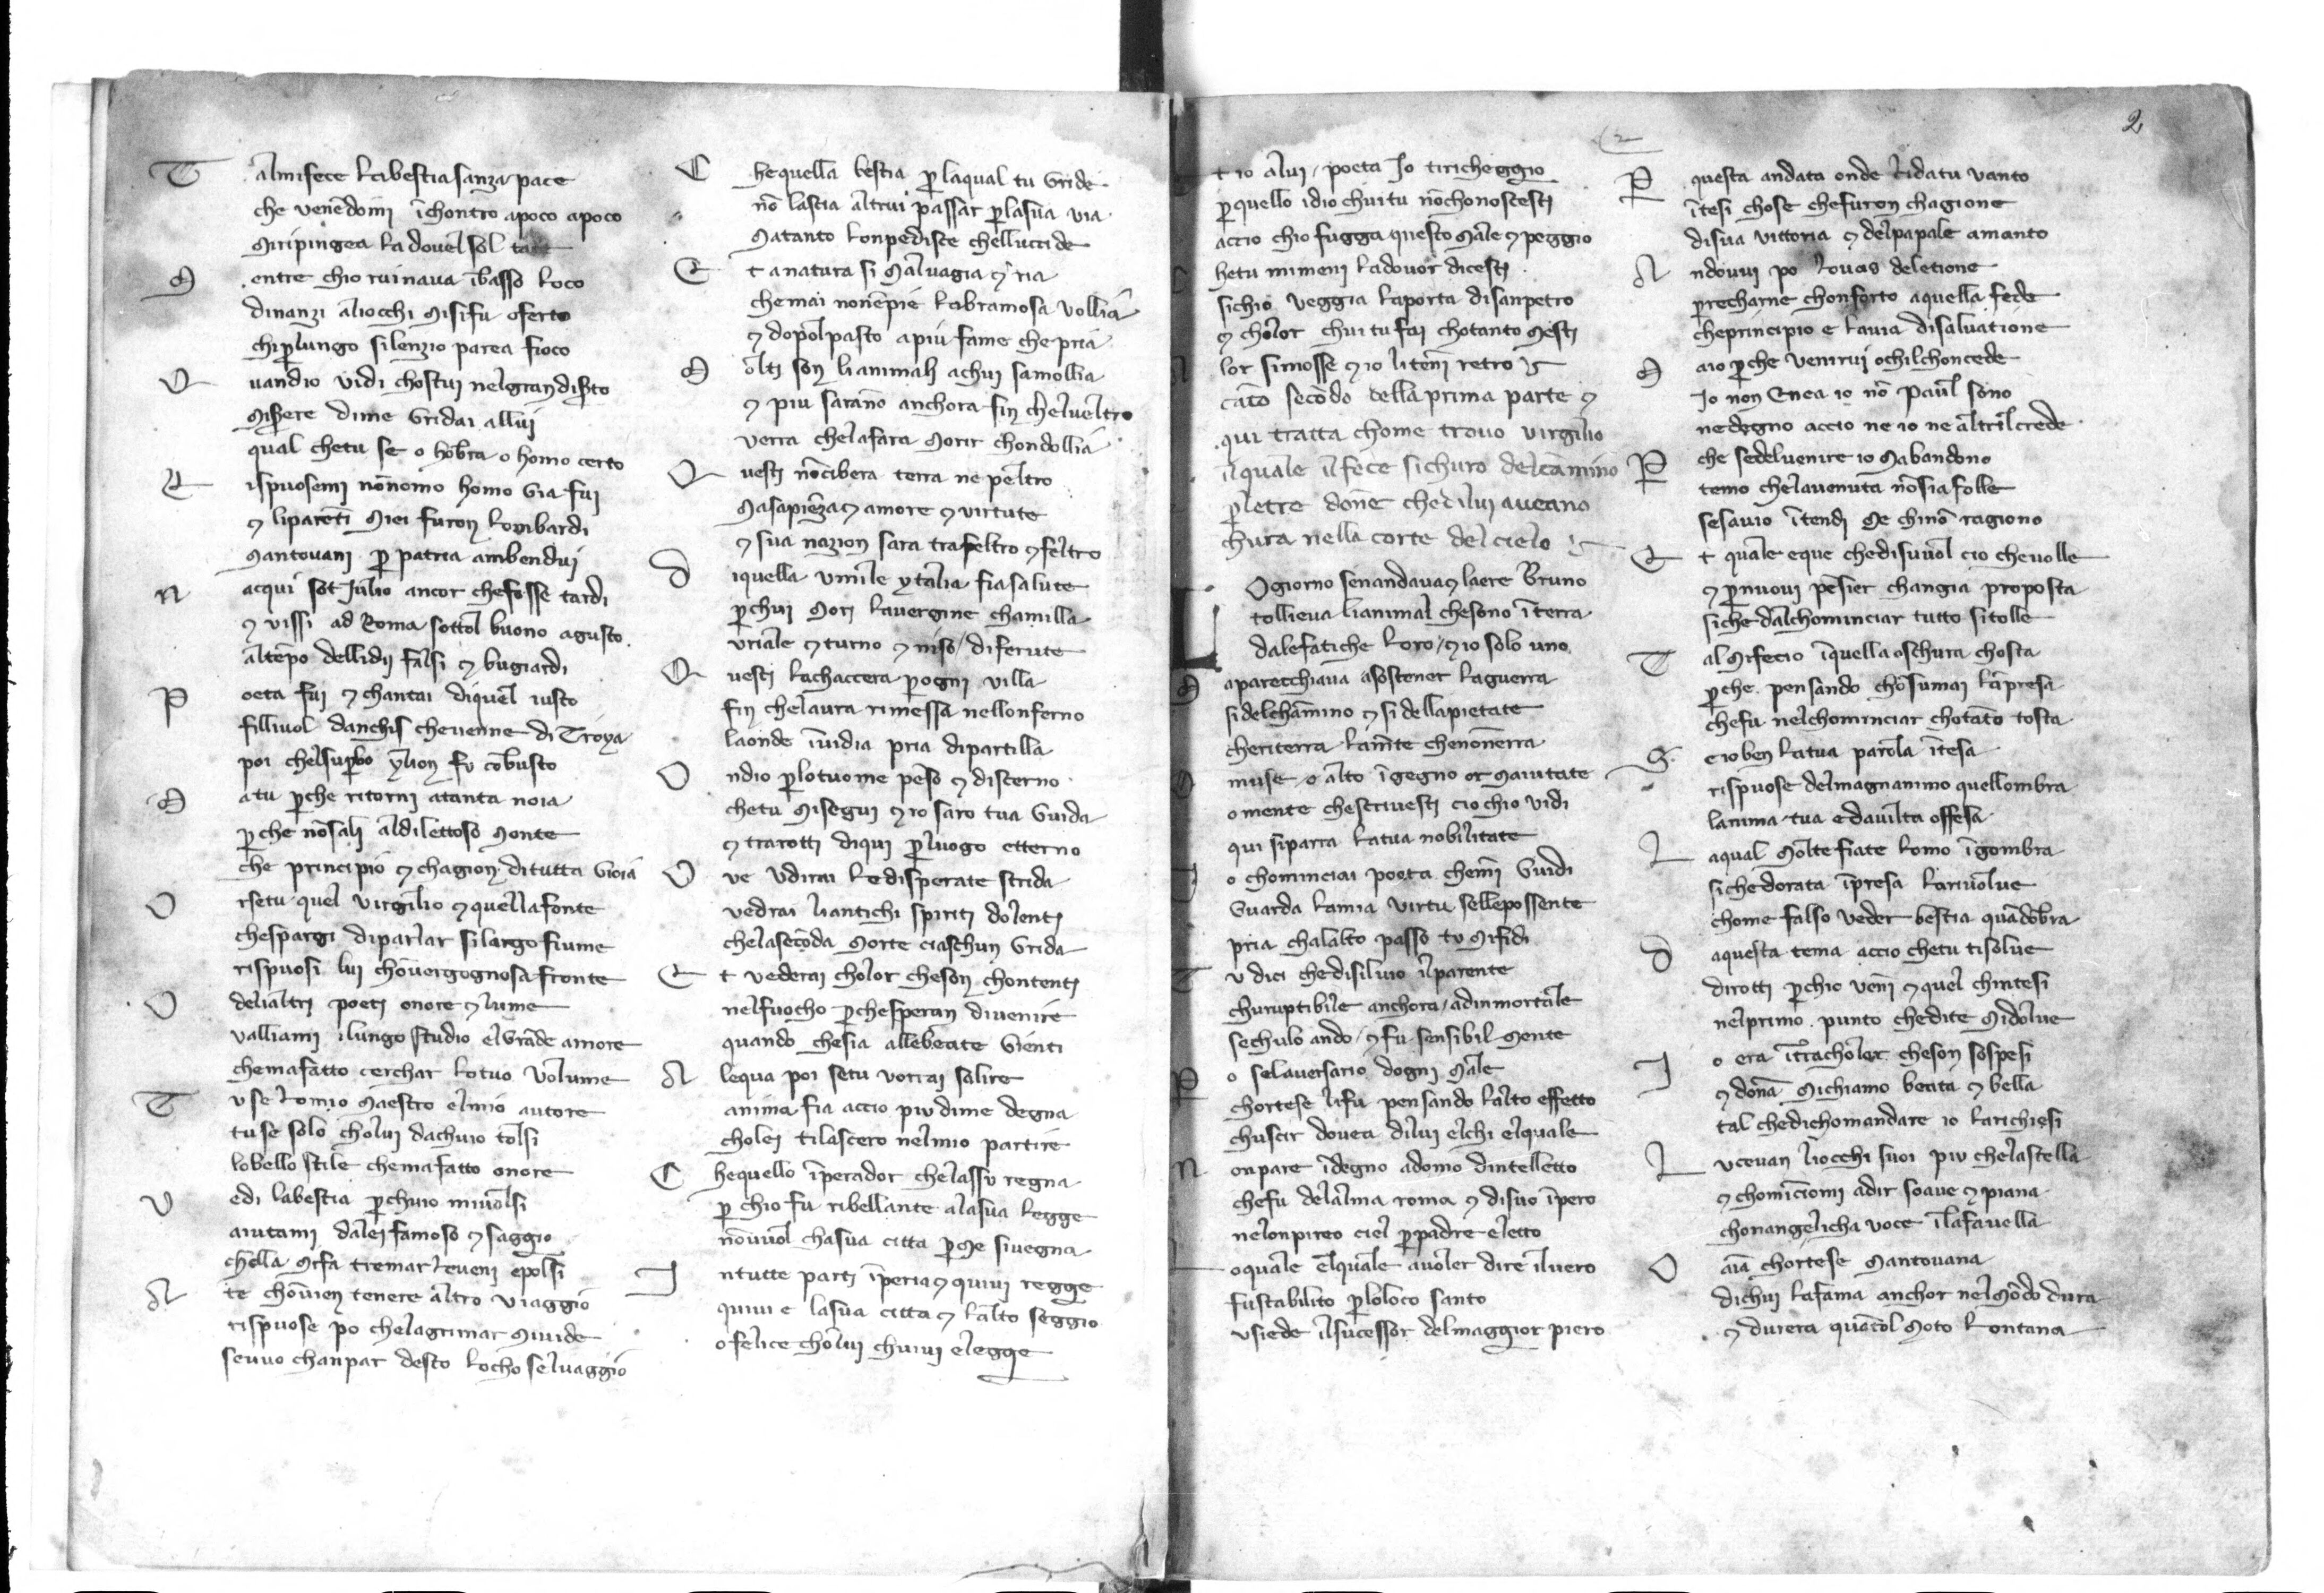 T almifece labestia sanza pace
che venēdomi īchontro apoco apoco
miripingea la dovel sol tace
M entre chio ruinava ībasso loco
dinanzi aliocchi misifu oferto
chiꝑlungo silenzio parea fioco
Q uandio vidi chostui nelgran diꝑto
misere dime gridai allui
qual chetu se o hōbra o homo certo
R ispuosemi nōnomo homo gia fui
⁊ liparēti miei furon lonbardi
mantovani ꝑ patria ambendui
N acqui sot Julio ancor chefosse tardi
⁊ vissi ad Roma sottol buono agusto
altēpo dellidij falsi ⁊ bugiardi
P oeta fui ⁊ chantai diquel iusto
fillivol danchis chevenne di Troya
poi chelsuꝑbo ylion fu cōbusto
M atu ꝑche ritorni atanta noia
ꝑche nōsali aldilettoso monte
che principio ⁊ chagion ditutta gioia
O rsetu quel virgilio ⁊ quellafonte
chespargi diparlar silargo fiume
rispuosi lui chōvergognosa fronte
O delialtri poeti onore ⁊ lume
valliami ilungo studio elgrāde amore
chemafatto cerchar lotuo volume
T use lomio maestro elmio autore
tuse solo cholui dachuio tolsi
lobello stile chemafatto onore
V edi labestia ꝑchuio mivolsi
aiutami dalei famoso ⁊ saggio
chella mifa tremar leveni epolsi
A te chōvien tenere altro viaggio
rispuose po chelagrimar mivide
sevvo chanpar desto locho selvaggio
C hequella bestia ꝑ laqual tu gride
nō lascia altrui passar ꝑlasua via
matanto lonpedisce chelluccide
E t anatura si malvagia ⁊ ria
chemai nonēpie labramosa vollia
⁊ dopolpasto apiu fame chepria
M olti son lianimali achui samollia
⁊ piu sarāno anchora fin chelveltro
verra chelafara morir chondollia
Q uesti nōcibera terra ne peltro
masapiēza ⁊ amore ⁊ virtute
⁊ sua nazion sara trafeltro ⁊ feltro
D iquella vmile ytalia fia salute
ꝑchui mori lavergine chamilla
vriale ⁊ turno ⁊ niso / diferute
Q uesti lachaccera ꝑogni villa
fin chelavra rimessa nellonferno
laonde īvidia pria dipartilla
O ndio ꝑlotuome pēso ⁊ discerno
chetu misegui ⁊ io saro tua guida
⁊ trarotti diqui ꝑluogo etterno
O ve vdirai ledisperate strida
vedrai liantichi spiriti dolenti
chelasecōda morte ciaschun grida
E t vederai cholor cheson chontenti
nelfuocho ꝑchesperan divenire
quando chesia allebeate gienti
A lequa poi setu vorrai salire
anima fia accio piu dime degna
cholei tilascero nelmio partire
C hequello īperador chelassu regna
ꝑ chio fu ribellante alasua legge
nōvuol chasua citta ꝑme sivegna
I ntutte parti īperia ⁊ quivi regge
quivi e lasua citta ⁊ lalto seggio
ofelice cholui chuivi elegge
2
t io alui / poeta Io tiricheggio
ꝑquello idio chuitu nōchonoscesti
accio chio fugga questo male ⁊ peggio
hetu mimeni ladovor dicesti
sichio veggia laporta disanpetro
⁊ cholor chui tu fai chotanto mesti
A lor simosse ⁊ io liteni retro
cāto secōdo della prima parte ⁊
qui tratta chome trovo virgilio
ilquale ilfece sichuro delcāmino
ꝑletre done chedilui aveano
chura nella corte del cielo
L Ogiorno senandava ⁊ laere bruno
tollieva lianimal chesono īterra
dalefatiche loro / ⁊ io solo uno
M aparecchiava asostener laguerra
sidelchāmino ⁊ si dellapietate
cheriterra lamēte chenonerra
O muse o alto īgegno or maiutate
omente chescrivesti cio chio vidi
qui siparra latua nobilitate
I o chominciai poeta chemi guidi
guarda lamia virtu sellepossente
pria chalalto passo tu mifidi
T v dici chedisilvio ilparente
churuptibile anchora / adinmortale
sechulo ando / ⁊ fu sensibil mente
P o selaversario dogni male
chortese lifu pensando lalto effetto
chuscir dovea dilui elchi elquale
N onpare īdegno adomo dintelletto
chefu delalma roma ⁊ disuo īpero
nelonpireo ciel ꝑpadre eletto
L oquale elquale avoler dire ilvero
fustabilito ꝑloloco santo
vsiede ilsucessor delmaggior piero
P questa andata onde lidatu vanto
ītesi chose chefuron chagione
disua vittoria ⁊ delpapale amanto
A ndovvi po lovas deletione
ꝑrecharne chonforto aquella fede
cheprincipio e lavia disalvatione
M aio ꝑche venirvi ochilchoncede
Io non Enea io nō Paul sono
nedegno accio ne io ne altrilcrede
P che sedelvenire io mabandono
temo chelavenuta nōsia folle
sesavio ītendi me chinō ragiono
E t quale eque chedisvuol cio chevolle
⁊ ꝑnuovi pēsier changia proposta
siche dalchominciar tutto sitolle
T al mifecio īquella oschura chosta
ꝑche pensando chōsumai lāpresa
chefu nelchominciar chotāto tosta
S eioben latua parola ītesa
rispuose delmagnanimo quellombra
lanima tua edavilta offesa
L aqual molte fiate lomo īgombra
sichedorata īpresa larivolve
chome falso veder bestia quādōbra
D aquesta tema accio chetu tisolve
dirotti ꝑchio veni ⁊ quel chintesi
nelprimo punto chedite midolve
I o era ītracholor cheson sospesi
⁊ donā michiamo beata ⁊ bella
tal chedichomandare io larichiesi
L vcevan liocchi suoi piu chelastella
⁊ chomīciomi adir soave ⁊ piana
chonangelicha voce ilafavella
O aīa chortese mantovana
dichui lafama anchor nelmōdo dura
⁊ durera quātol moto lontana